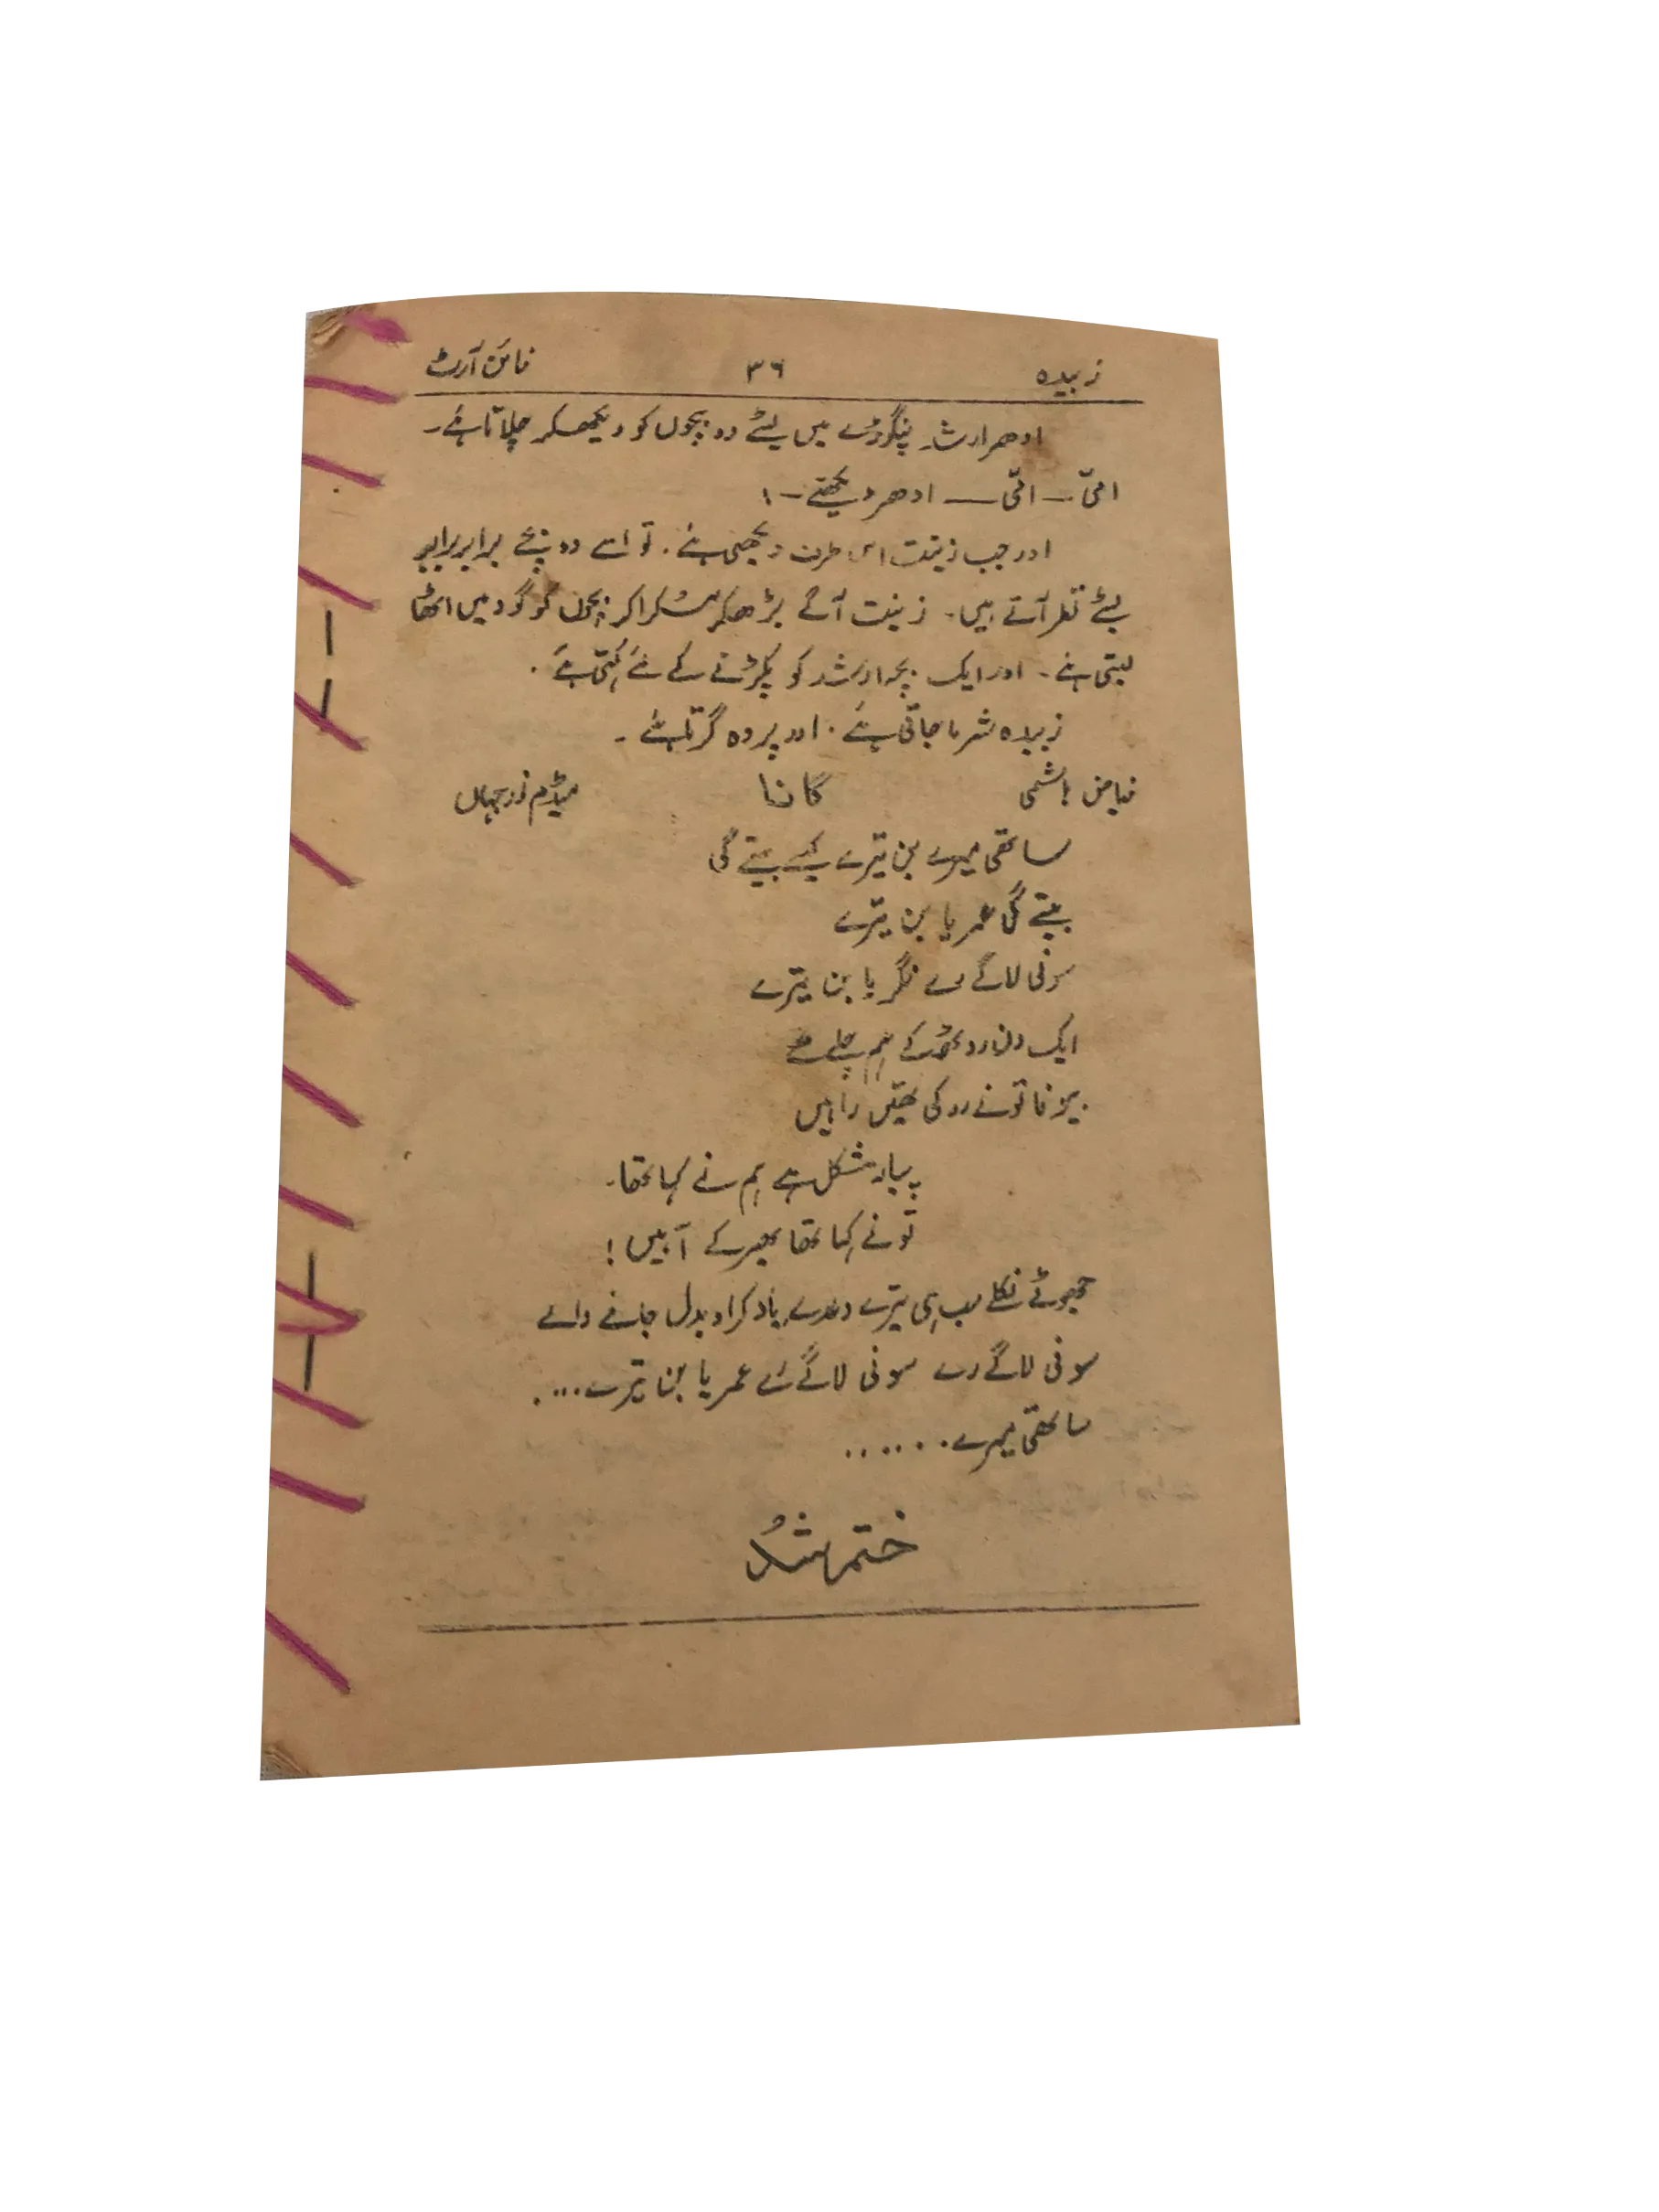 زبیدہ ۳۶ فائن آرٹ
ادھر ارشد پنگوڑے میں لیٹے دو بچوں کو دیکھکر چلاتا ہے۔
امّی ـ امّی ـ ادھر دیکھئے ـ!
اور جب زینت اس طرف دیکھتی ہے۔ تو اسے دو بچے برابر برابر
لیٹے نظر آتے ہیں۔ زینت آگے بڑھکر مسکرا کر بچوں کو گود میں اٹھا
لیتی ہے۔ اور ایک بچہ ارشد کو پکڑنے کے لئے کہتی ہے۔
زبیدہ شرما جاتی ہے۔ اور پردہ گرتا ہے۔
فیاض ہاشمی گانا میڈم نورجہاں
ساتھی میرے بن تیرے کیسے بیتے گی
بیتے گی عمریا بن تیرے
سونی لاگے رے نگریا بنا تیرے
ایک دن روٹھ کے ہم چلے تھے
بیوفا تو نے روکی تھیں راہیں
پیار مشکل ہے ہم نے کہا تھا۔
تو نے کہا تھا بھر کے آہیں!
جھوٹے نکلے سب ہی تیرے وعدے یاد کر او بدل جانے والے
سونی لاگے رے سونی لاگے رے عمریا بنا تیرے....
ساتھی میرے......
ختم شُد